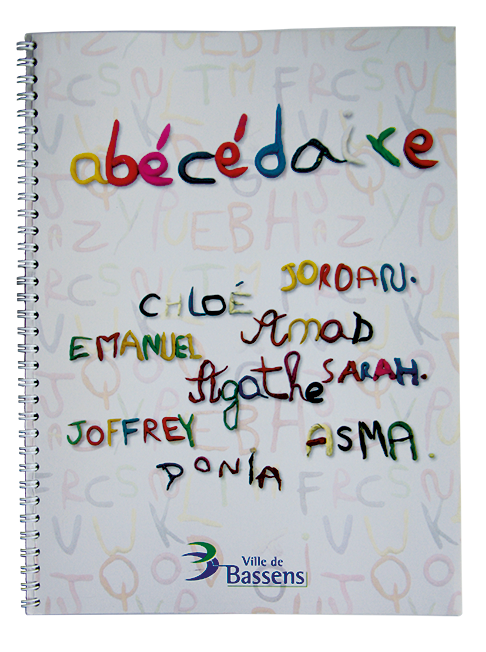 abécédaire
JORDAN.
CHLOÉ
Amad
EMANUEL
SARAH.
Agathe
JOFFREY
ASMA.
DONIA
Ville de
Bassens